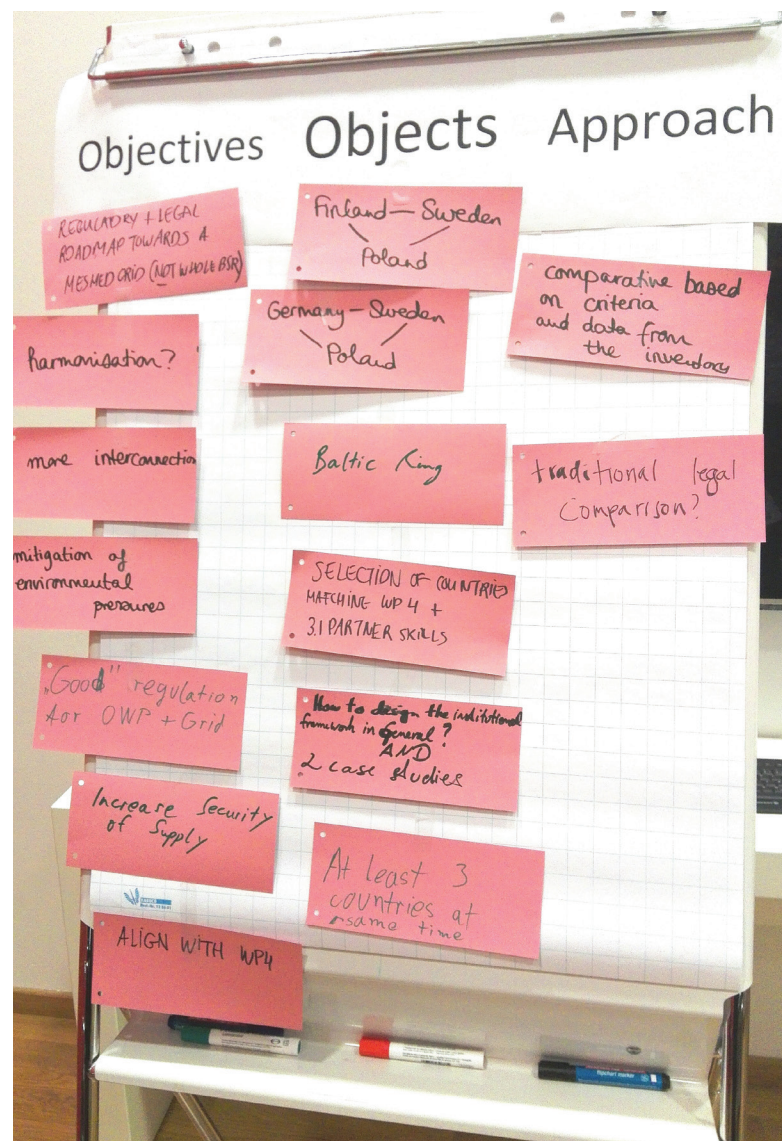 Objectives Objects Approach
REGULATORY + LEGAL
ROADMAP TOWARDS A
MESHED GRID (NOT WHOLE BSR)
harmonisation?
more interconnection
mitigation of
environmental
pressures
"Good" regulation
for OWP + Grid
Increase Security
of Supply
ALIGN WITH WP4
Finland — Sweden
Poland
Germany — Sweden
Poland
Baltic Ring
SELECTION OF COUNTRIES
MATCHING WP4 +
3.1 PARTNER SKILLS
How to design the institutional
framework in General?
AND
2 case studies
At least 3
countries at
same time
comparative based
on criteria
and data from
the inventory
traditional legal
Comparison?
flipchart marker